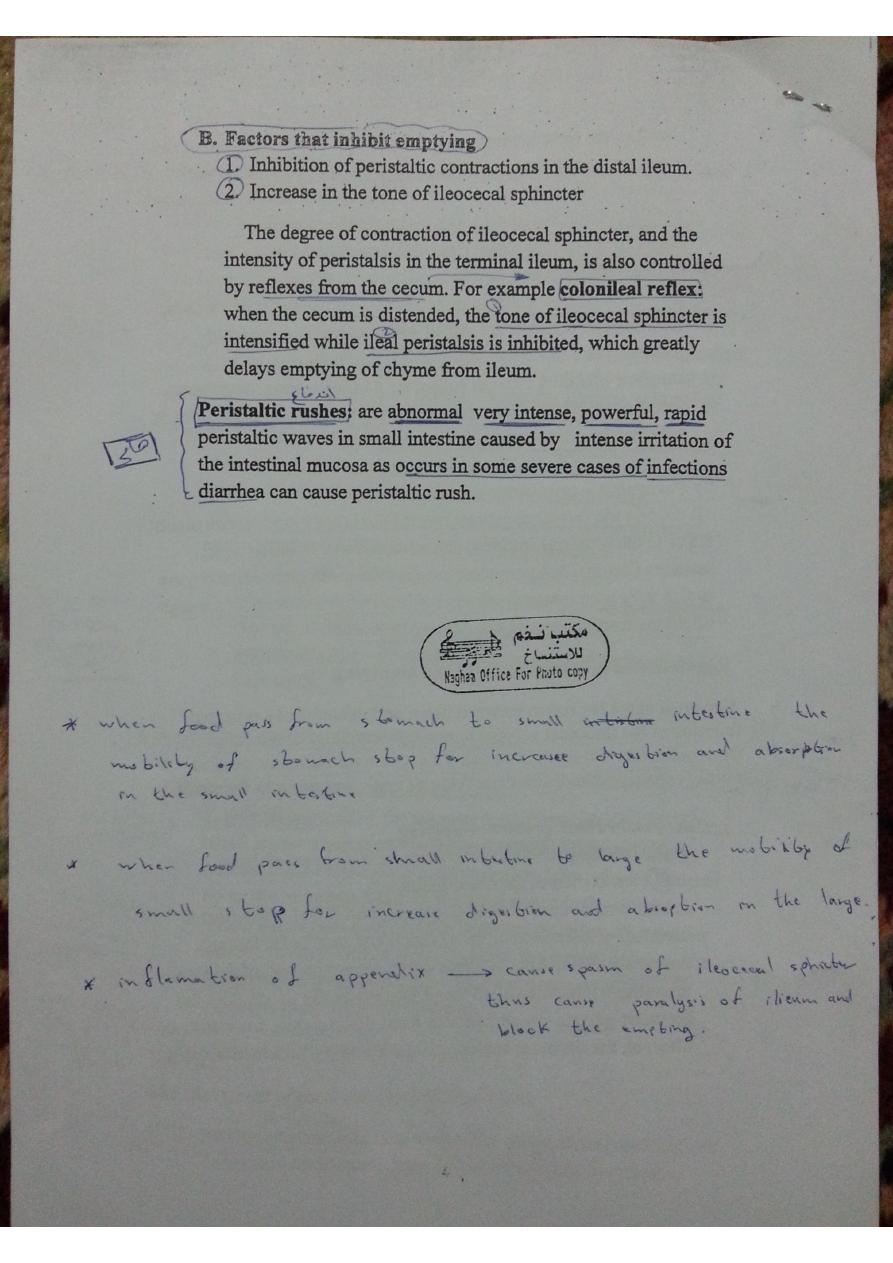 B. Factors that inhibit emptying
1. Inhibition of peristaltic contractions in the distal ileum.
2. Increase in the tone of ileocecal sphincter
The degree of contraction of ileocecal sphincter, and the
intensity of peristalsis in the terminal ileum, is also controlled
by reflexes from the cecum. For example colonileal reflex:
1
when the cecum is distended, the tone of ileocecal sphincter is
2
intensified while ileal peristalsis is inhibited, which greatly
delays emptying of chyme from ileum.
اندفاع
Peristaltic rushes: are abnormal very intense, powerful, rapid
peristaltic waves in small intestine caused by intense irritation of
the intestinal mucosa as occurs in some severe cases of infections
diarrhea can cause peristaltic rush.
مكتب نغم
للاستنساخ
Naghaa Office For Photo copy
* when food pass from stomach to small intestine the
mobility of stomach stop for increase digestion and absorption
in the small intestine
* when food pass from small intestine to large the mobility of
small stop for increase digestion and absorption in the large.
* inflamation of appendix → cause spasm of ileocecal sphincter
thus cause paralysis of ilieum and
block the empting.